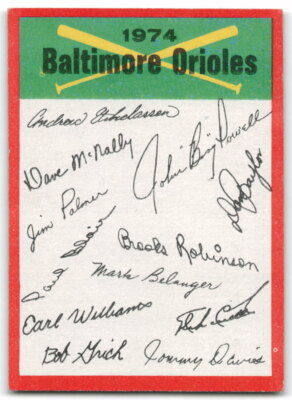 1974
Baltimore Orioles
Andrew Etchebarren
Dave McNally
John "Boog" Powell
Jim Palmer
Don Baylor
Paul Blair
Brooks Robinson
Mark Belanger
Earl Williams
Bob Grich
Tommy Davis